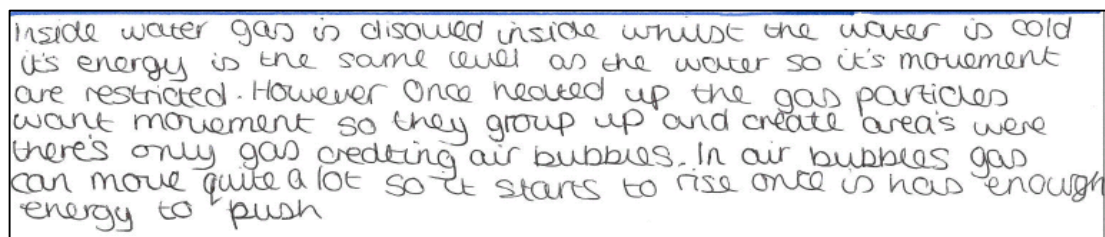 Inside water gas is disolued inside whilst the water is cold
it's energy is the same level as the water so it's movement
are restricted. However Once heated up the gas particles
want movement so they group up and create area's were
there's only gas creating air bubbles. In air bubbles gas
can move quite a lot so it starts to rise once is has enough
energy to push